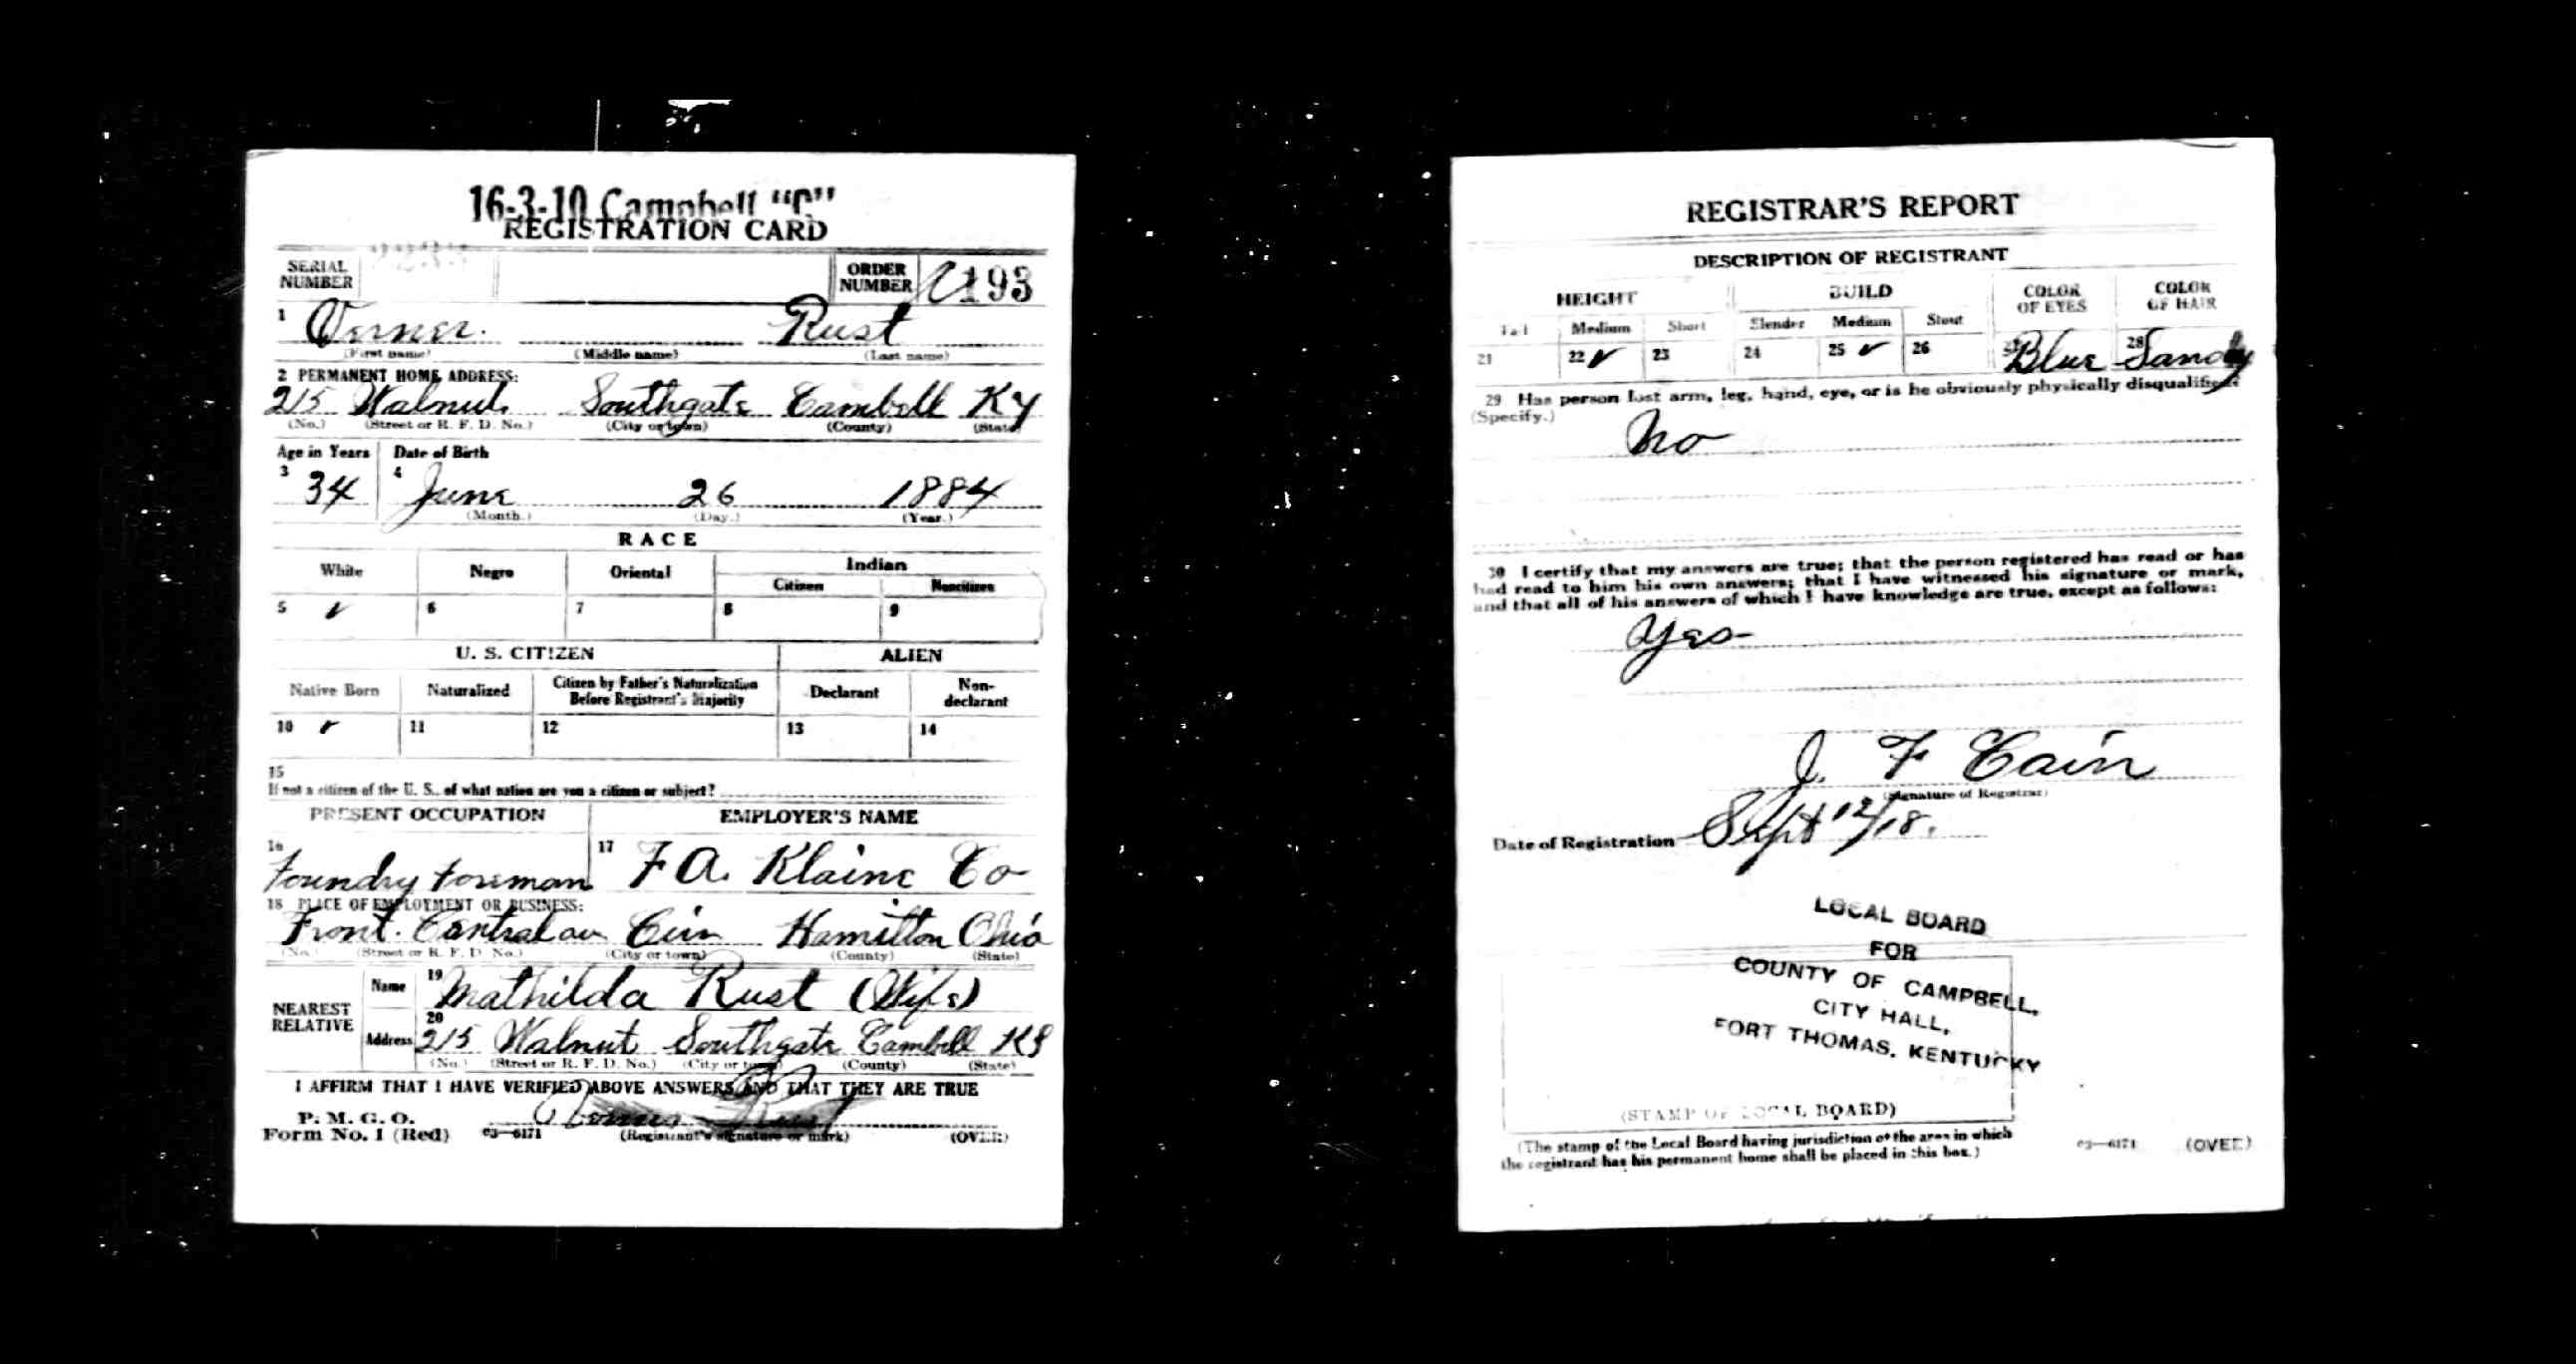 16-3-10 Campbell "C"
REGISTRATION CARD
SERIAL NUMBER
ORDER NUMBER 193
1 Verner Rust
(First name) (Middle name) (Last name)
2 PERMANENT HOME ADDRESS:
215 Walnut Southgate Cambell Ky
(No.) (Street or R. F. D. No.) (City or town) (County) (State)
Age in Years Date of Birth
3 34 4 June 26 1884
(Month.) (Day.) (Year.)
RACE
White Negro Oriental Indian
Citizen Noncitizen
5 ✓ 6 7 8 9
U. S. CITIZEN ALIEN
Native Born Naturalized Citizen by Father's Naturalization Before Registrant's Majority Declarant Non-declarant
10 ✓ 11 12 13 14
15
If not a citizen of the U. S., of what nation are you a citizen or subject?
PRESENT OCCUPATION EMPLOYER'S NAME
16 Foundry Foreman 17 F A. Klaine Co
18 PLACE OF EMPLOYMENT OR BUSINESS:
Front. Central av Cin Hamilton Ohio
(No.) (Street or R. F. D. No.) (City or town) (County) (State)
NEAREST RELATIVE
Name 19 Mathilda Rust (Wife)
Address 20 215 Walnut Southgate Cambell Ky
(No.) (Street or R. F. D. No.) (City or town) (County) (State)
I AFFIRM THAT I HAVE VERIFIED ABOVE ANSWERS AND THAT THEY ARE TRUE
P. M. G. O.
Form No. 1 (Red) 03—6171 (Registrant's signature or mark) (OVER)
Rust
REGISTRAR'S REPORT
DESCRIPTION OF REGISTRANT
HEIGHT BUILD COLOR OF EYES COLOR OF HAIR
Tall Medium Short Slender Medium Stout
21 22 ✓ 23 24 25 ✓ 26 27 Blue 28 Sandy
29 Has person lost arm, leg, hand, eye, or is he obviously physically disqualified?
(Specify.)
No
30 I certify that my answers are true; that the person registered has read or has
had read to him his own answers; that I have witnessed his signature or mark,
and that all of his answers of which I have knowledge are true, except as follows:
Yes
J. F Cain
(Signature of Registrar)
Date of Registration Sept 12/18.
LOCAL BOARD
FOR
COUNTY OF CAMPBELL,
CITY HALL,
FORT THOMAS, KENTUCKY
(STAMP OF LOCAL BOARD)
(The stamp of the Local Board having jurisdiction of the area in which
the registrant has his permanent home shall be placed in this box.)
03—6171 (OVER)